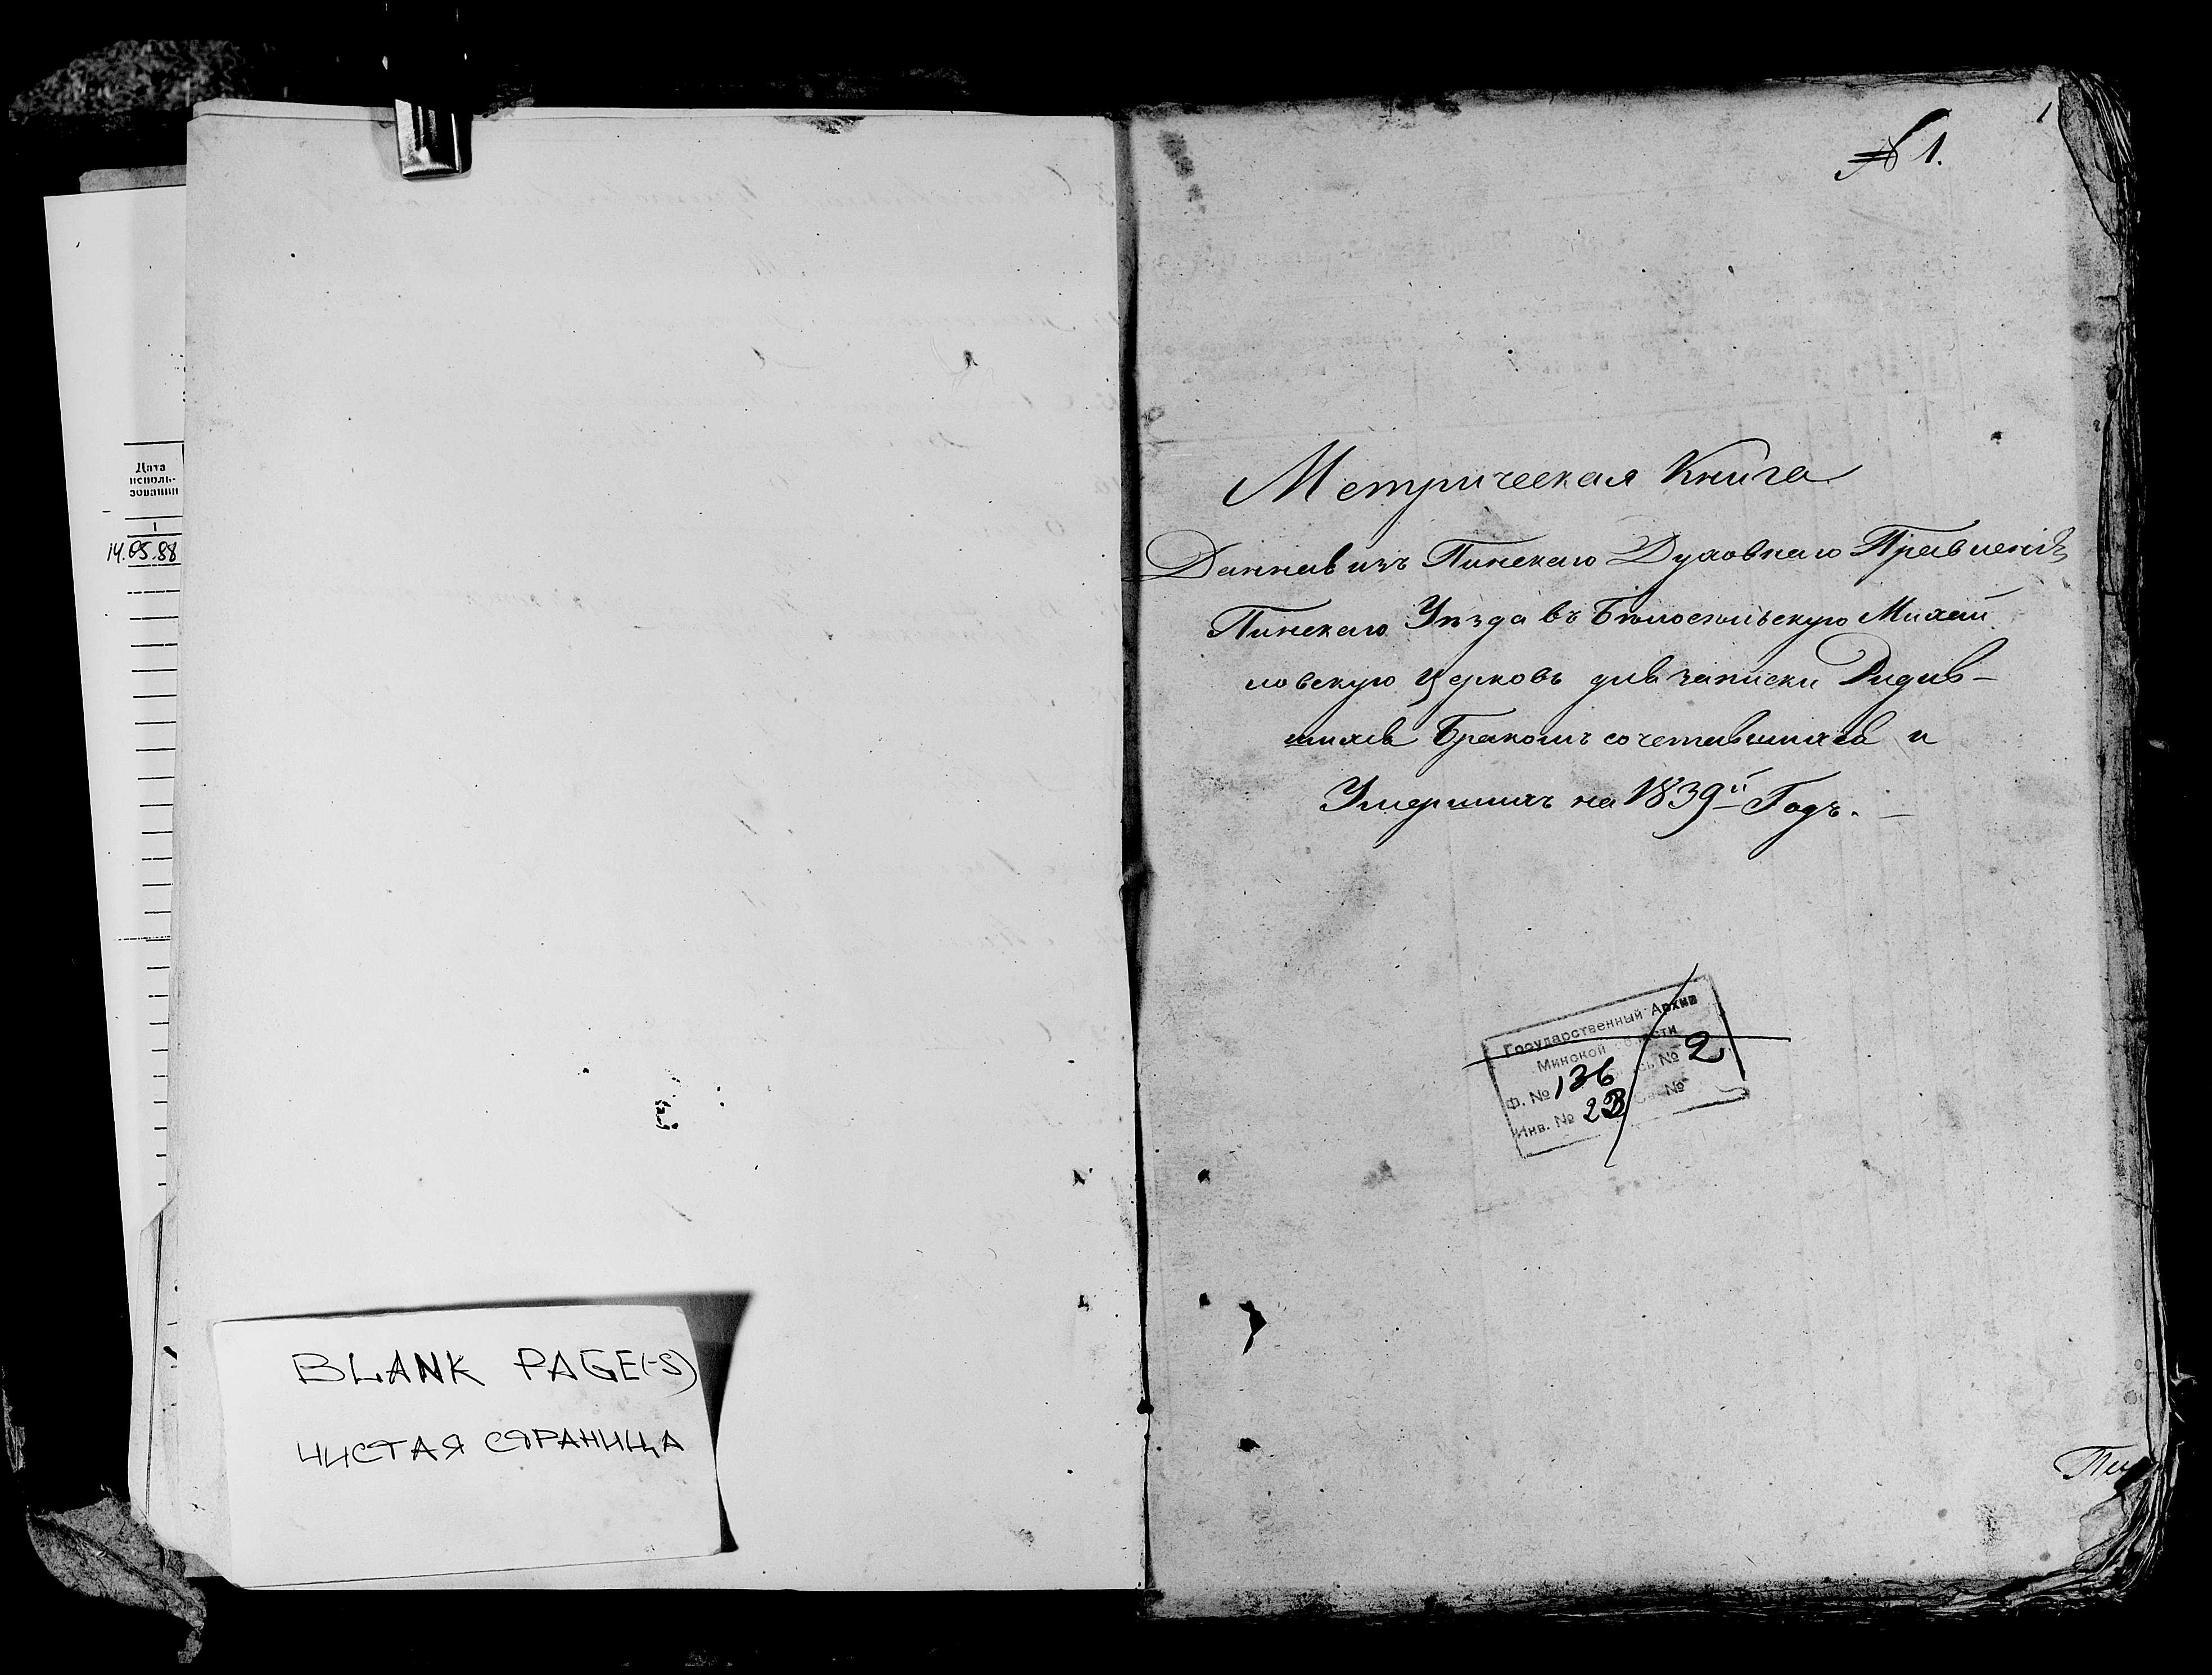 Дата
исполь-
зования
1
14.05.88
BLANK PAGE(-S)
ЧИСТАЯ СТРАНИЦА
1
№ 1.
Метрическая Книга
Данная изъ Пинскаго Духовнаго Правленія
Пинскаго Уѣзда въ Бѣлосельскую Михай
ловскую церковь для записки Родив-
шихся Бракомъ сочетавшихся и
Умершихъ на 1839й Годъ.
Государственный Архив
Минской области
Ф. № 136 Опись № 2
Инв. № 23 Св. №